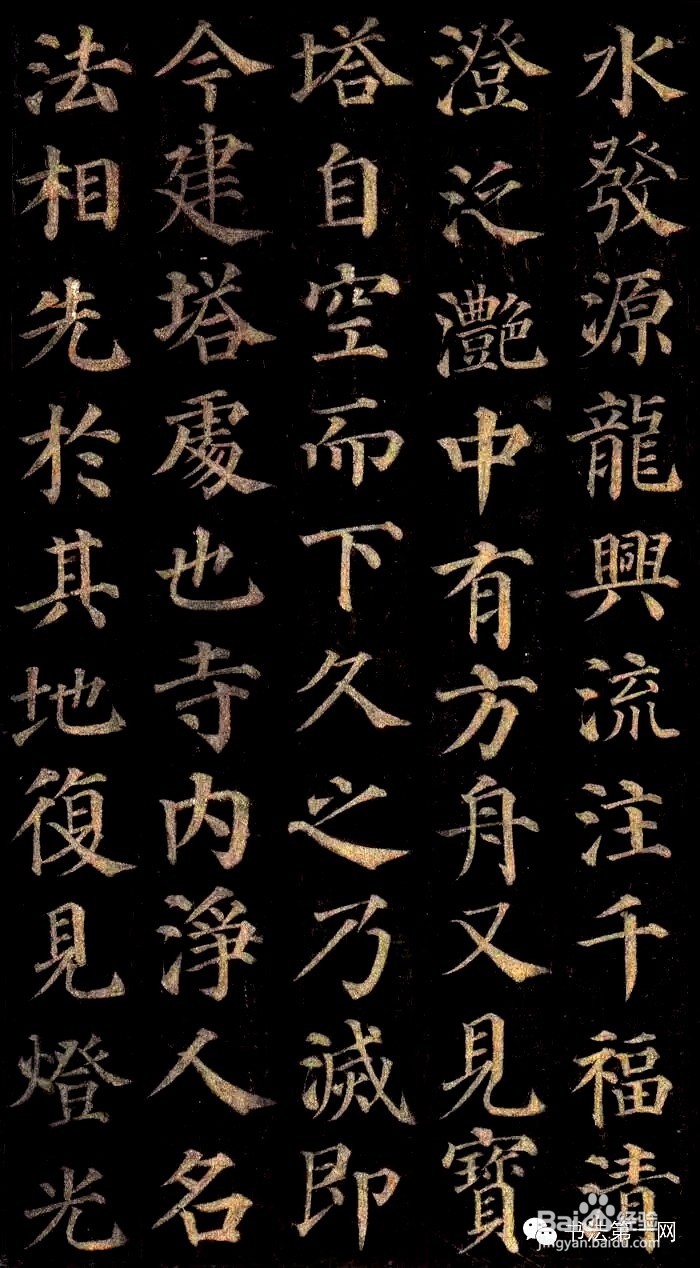 水發源龍興流注千福清
澄泛灩中有方舟又見寶
塔自空而下久之乃滅即
今建塔處也寺内淨人名
法相先於其地復見燈光
Baidu经验
jingyan.baidu.com
书法第一网